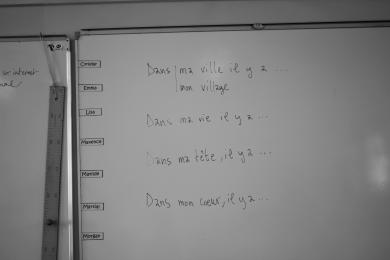 sur internet
Coralie
Emma
Lisa
Maxence
Mathilde
Martial
Morgan
Dans ma ville il y a ...
mon village
Dans ma vie il y a ...
Dans ma tête, il y a ...
Dans mon cœur, il y a ...